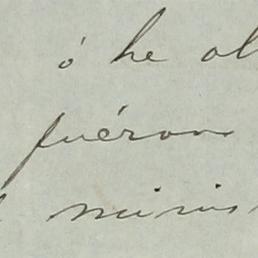 ó he ol
fuéron
minis